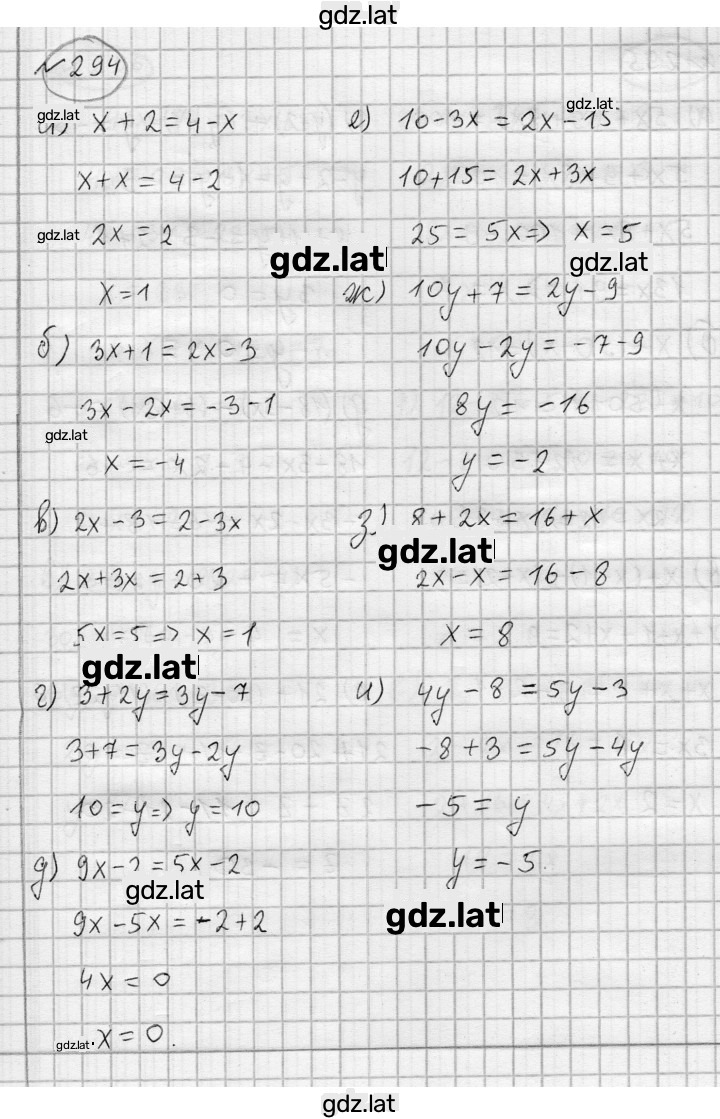 gdz.lat
№ 294
gdz.lat
x + 2 = 4 - x
x + x = 4 - 2
gdz.lat 2x = 2
gdz.lat
x = 1
б) 3x + 1 = 2x - 3
3x - 2x = -3 - 1
gdz.lat
x = -4
в) 2x - 3 = 2 - 3x
2x + 3x = 2 + 3
5x = 5 => x = 1
gdz.lat
г) 3 + 2y = 3y - 7
3 + 7 = 3y - 2y
10 = y => y = 10
д) 9x - 2 = 5x - 2
gdz.lat
9x - 5x = -2 + 2
4x = 0
gdz.lat x = 0.
gdz.lat
е) 10 - 3x = 2x - 15
10 + 15 = 2x + 3x
25 = 5x => x = 5
gdz.lat
ж) 10y + 7 = 2y - 9
10y - 2y = -7 - 9
8y = -16
y = -2
з) 8 + 2x = 16 + x
gdz.lat
2x - x = 16 - 8
x = 8
и) 4y - 8 = 5y - 3
-8 + 3 = 5y - 4y
-5 = y
y = -5.
gdz.lat
gdz.lat